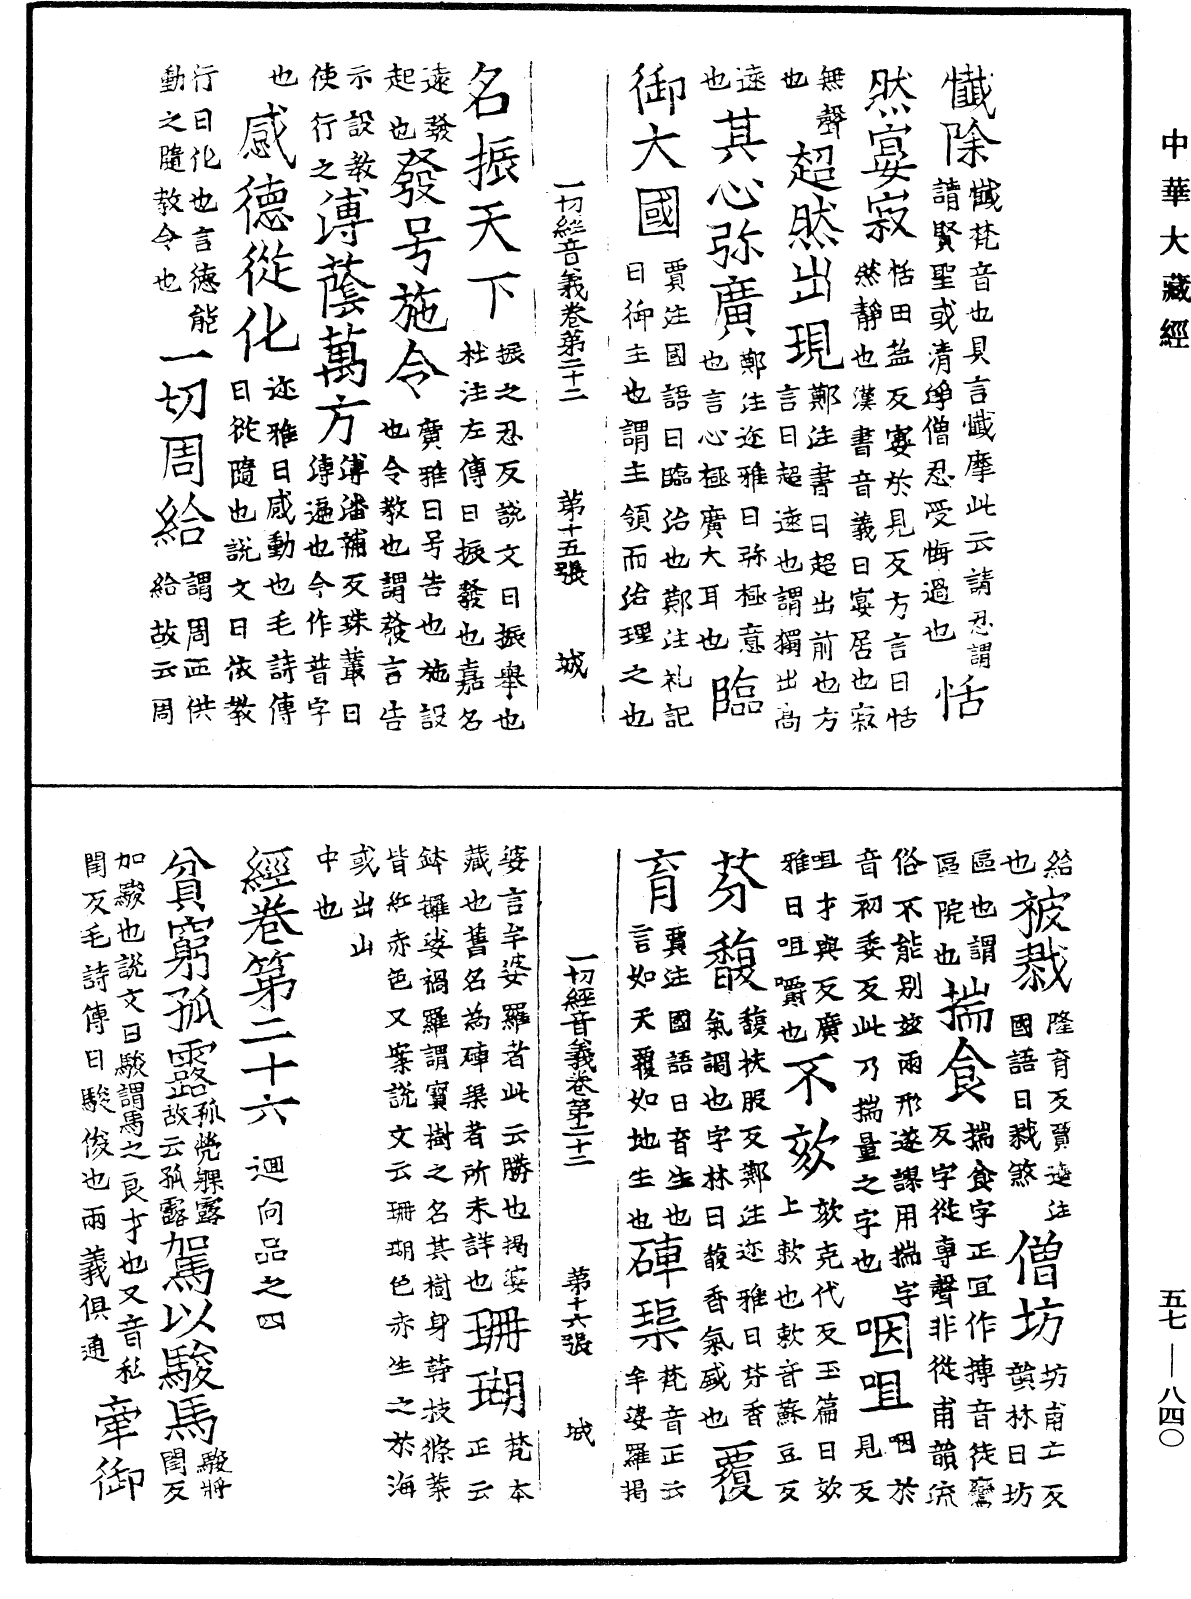 中華大藏經
懺除懺梵音也具言懺摩此云請忍謂請賢聖或清淨僧忍受悔過也恬
然宴寂恬田盐反宴於見反方言曰恬然靜也漢書音義曰宴居也寂
無聲也超然出現鄭注書曰超出前也方言曰超遠也謂獨出高
遠也其心弥廣鄭注迩雅曰弥極意也言心極廣大耳也臨
御大國賈注國語曰臨治也鄭注礼記曰御主也謂主領而治理之也
一切經音義卷第二十二　第十五張　城
名振天下振之忍反說文曰振舉也杜注左傳曰振發也嘉名
遠發起也發号施令廣雅曰号告也施設也令教也謂發言告
示設教使行之溥蔭萬方溥潘補反珠叢曰溥遍也今作普字
也感德從化迩雅曰感動也毛詩傳曰從隨也說文曰依教
行曰化也言德能動之隨教令也一切周給謂周匝供給故云周
給也被戮隆育反賈逵注國語曰戮煞僧坊坊甫亡反韻林曰坊
區也謂區院也揣食揣食字正冝作摶音徒鸞反字從專聲非從甫韻流
俗不能別茲兩形遂謬用揣字音初委反此乃揣量之字也咽咀咽於見反
咀才與反廣雅曰咀嚼也不欬欬克代反玉篇曰欬上欶也欶音蘇豆反
芬馥馥扶服反鄭注迩雅曰芬香氣調也字林曰馥香氣盛也覆
育賈注國語曰育生也言如天覆如地生也硨磲梵音正云牟婆羅揭
婆言牟婆羅者此云勝也揭婆藏也舊名為硨渠者所未詳也珊瑚梵本正云
鉢攞娑禍羅謂寶樹之名其樹身幹枝條葉皆紅赤色又案說文云珊瑚色赤生之於海
或出山中也
一切經音義卷第二十二　第十六張　城
經卷第二十六　迴向品之四
貧窮孤露孤㷀躶露故云孤露駕以駿馬駿將閏反
加駿也說文曰駿謂馬之良才也又音私閏反毛詩傳曰駿俊也兩義俱通牽御
五七—八四〇